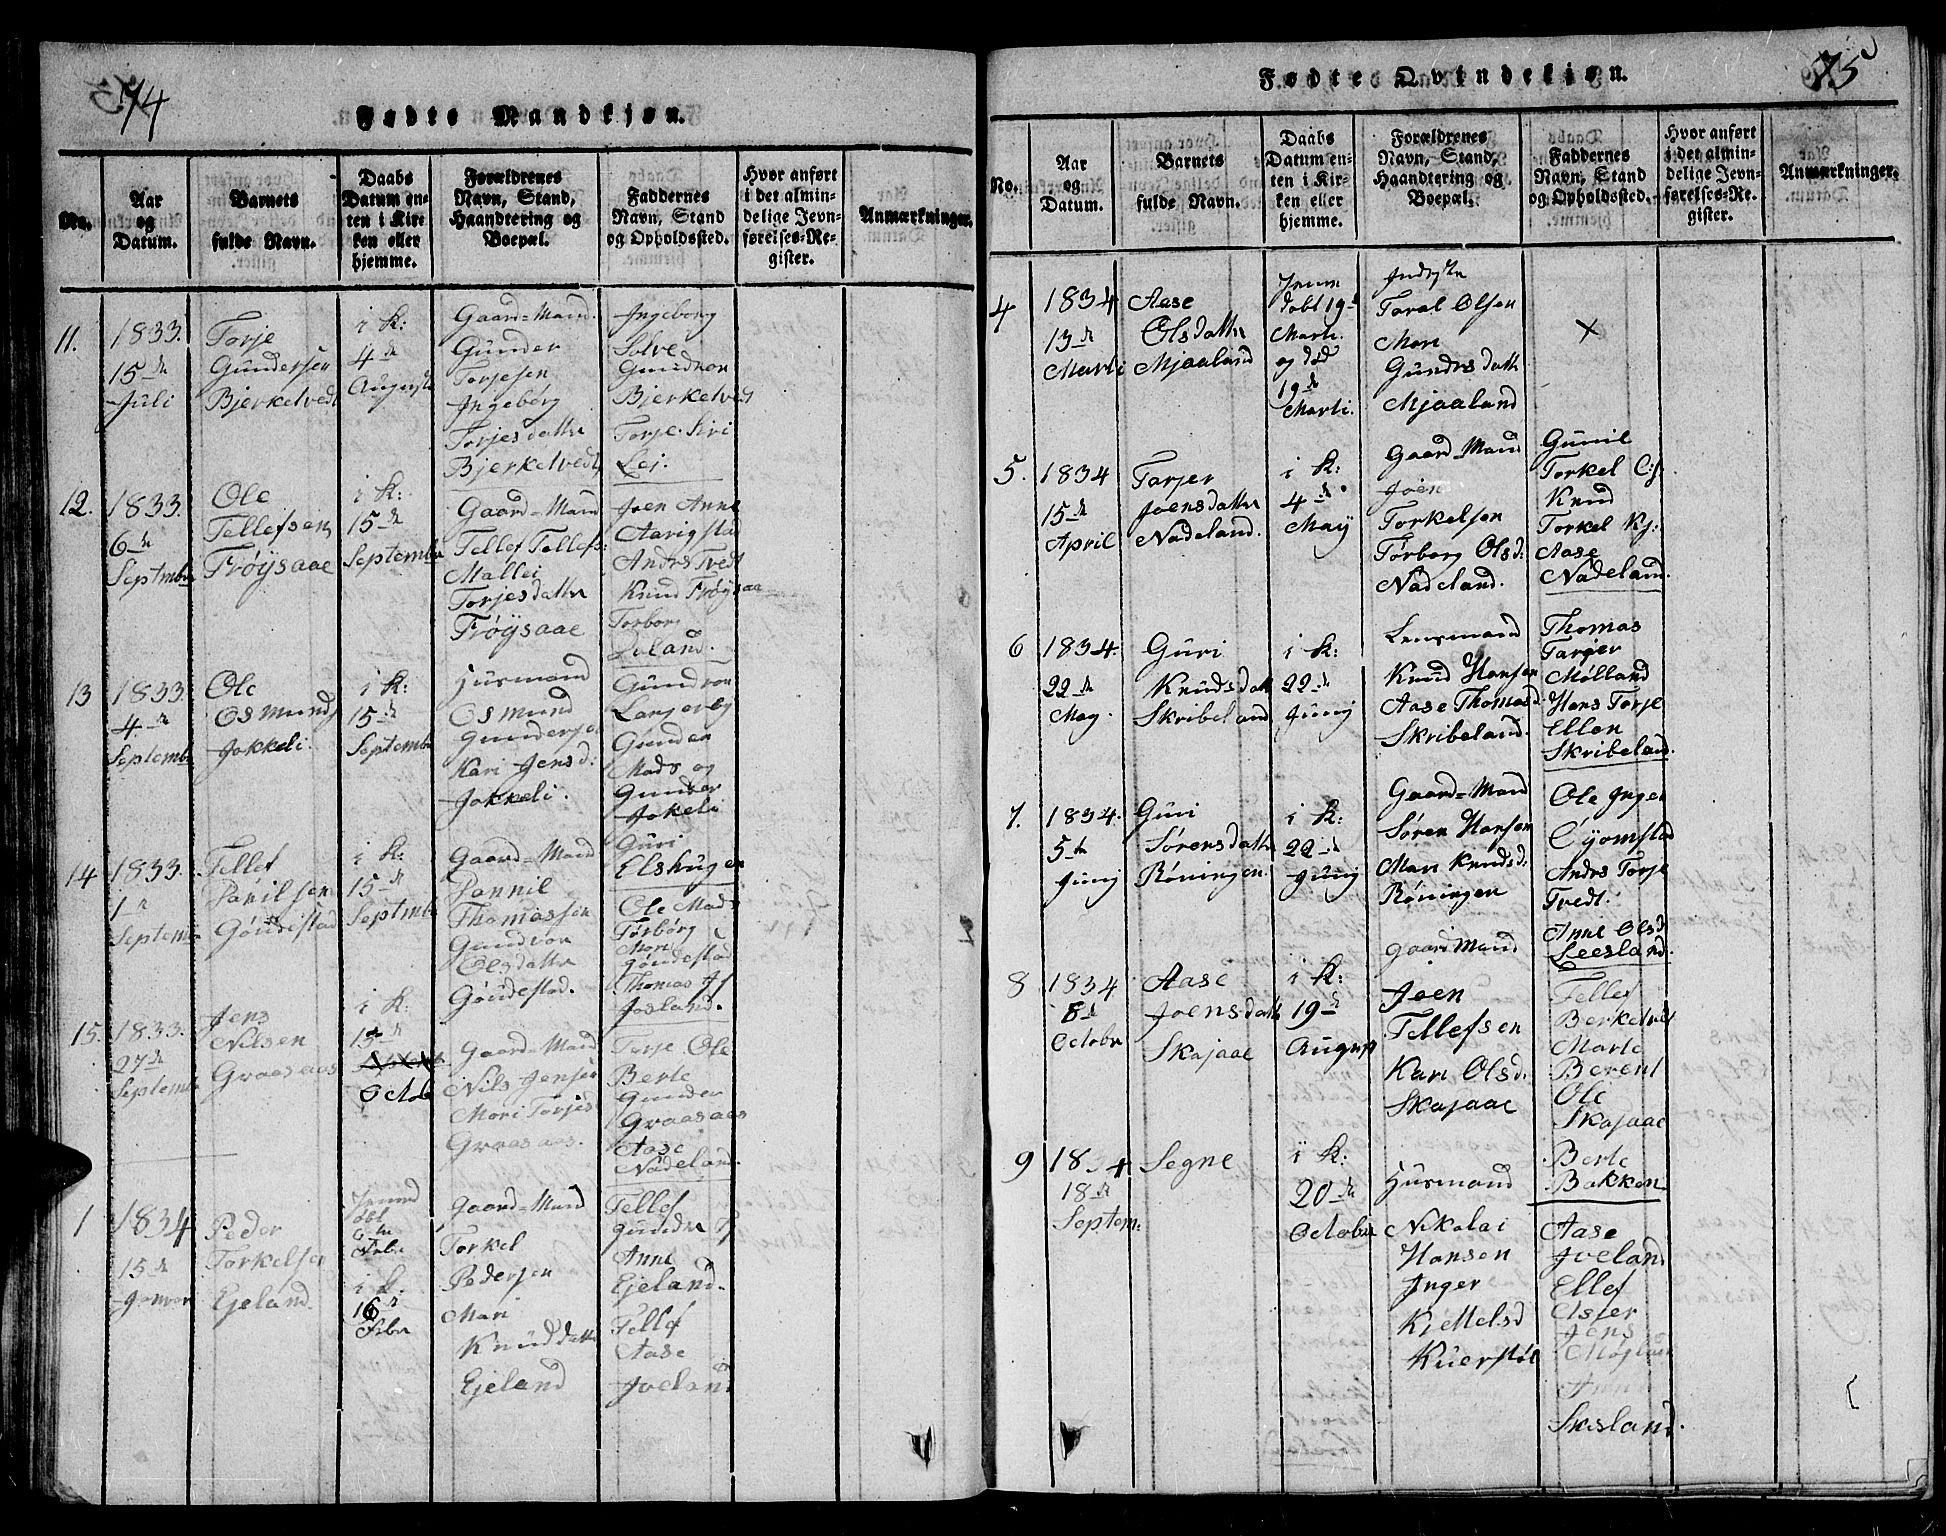 74
Fødte Mandkjøn.
No.
Aar
og
Datum.
Barnets
fulde Navn.
Daabs
Datum en-
ten i Kir-
ken eller
hjemme.
Forældrenes
Navn, Stand,
Haandtering og
Boepæl.
Faddernes
Navn, Stand
og Opholdssted.
Hvor anført
i det almin-
delige Jevn-
førelses-Re-
gister.
Anmærkninger.
11.
1833.
15de
Juli
Torje
Gundersen
Bjerketvedt
i K:
4de
Auguste
Gaard-Mand
Gunder
Torjesen
Ingeborg
Torjesdatter
Bjerketvedt
Ingeborg
Solve
Gundvor
Bjerketvedt
Torje Siri
Lej.
12.
1833.
6de
Septmber
Ole
Tellefsen
Frøÿsaae
i K:
15de
September
Gaard-Mand
Tellef Tellefs:
Mallei
Torjesdatter
Frøÿsaae
Joen Anne
Aarigsta
Andrs Tvedt
Knud Frøysaa
Torbor
Leland.
13
1833.
4de
September
Ole
Osmunds
Jokkeli.
i K:
15de
September
Husmand
Osmund
Gunderse
Kari Jensd:
Jokkeli.
Gundvor
Lanjerby
Gunder
Mads og
Gunder
Jokeli
14
1833.
1de
Septemb
Tellef
Panilsen
Gøudestad
i K:
15de
Septmber
Gaard-Mand
Pannil
Thomassen
Gundvor
Olsdatter
Gøudestad.
Guri
Elshugen
Ole Mads
Tørbørg
Mari
Gøudestad
Thomas
Josland.
15.
1833.
27de
Septemb
Jens
Nilsen
Graasaas
i K:
13de
October
Gaard-Mand
Nils Jensen
Mari Torjes
Graasaas.
Torje Ole
Berte
Gunder
Graasaas
Aase
Nadeland.
1
1834
15de
Janvar
Peder
Torkelsen
Ejeland.
døbt
6te
Febr
i K.
16de
Febr
Gaard-Mand
Torkel
Pedersen
Mari
Knuddatter
Ejeland
Tellef
Gunder
Anne
Ejeland.
Tellef
Aase
Joeland
75
Fødte Qvindekjøn.
No.
Aar
og
Datum.
Barnets
fulde Navn.
Daabs
Datum en-
ten i Kir-
ken eller
hjemme.
Forældrenes
Navn, Stand,
Haandtering og
Boepæl.
Faddernes
Navn, Stand
og Opholdssted.
Hvor anført
i det almin-
delige Jevn-
førelses-Re-
gister.
Anmærkninger.
4
1834
13de
Marti
Aase
Olsdatter
Mjaaland
døbt 19de
Marti.
og død
19de
Marti.
Inderste
Taral Olsen
Mari
Gundrsdatter
Mjaaland
×
5.
1834
15de
April
Tarjer
Joensdatter
Nadeland.
i K:
4de
Maÿ
Gaard-Mand
Joen
Torkelsen
Tørborg Olsd:
Nadeland.
Gunil
Torkel
Knud
Torkel Kj:
Aase
Nadeland.
6
1834.
22de
May.
Guri
Knudsdatter
Skribeland
i K:
22de
Junij
Lensmand
Knud Hansen
Aase Thomasd:
Skribeland.
Thomas
Tarjer
Mølland
Hans Torje
Ellen
Skribeland.
7.
1834.
5te
Junij
Guri
Sørensdatter
Røningen.
i K:
22de
Junij
Gaard-Mand
Søren Hansen
Mari Knudsd:
Røningen
Ole Inger
Andrs Torje
Tvedt.
Anne Olsd
Leesland.
8
1834
8de
October
Aase
Joensdatter
Skajaae
i K:
19de
August
Gaard Mand
Joen
Tellefsen
Kari Olsd:
Skajaae
Tellef
Berketvet
Marte
Berent
Ole
Skajaae
9
1834
18de
Septem:
Segne
i K:
20de
October
Husmand
Nikolai
Hansen
Inger
Kittelsd
Kuerstøl
Berte
Bakken
Aase
Joeland
Ellef
Osfer
Jens
Skisland.